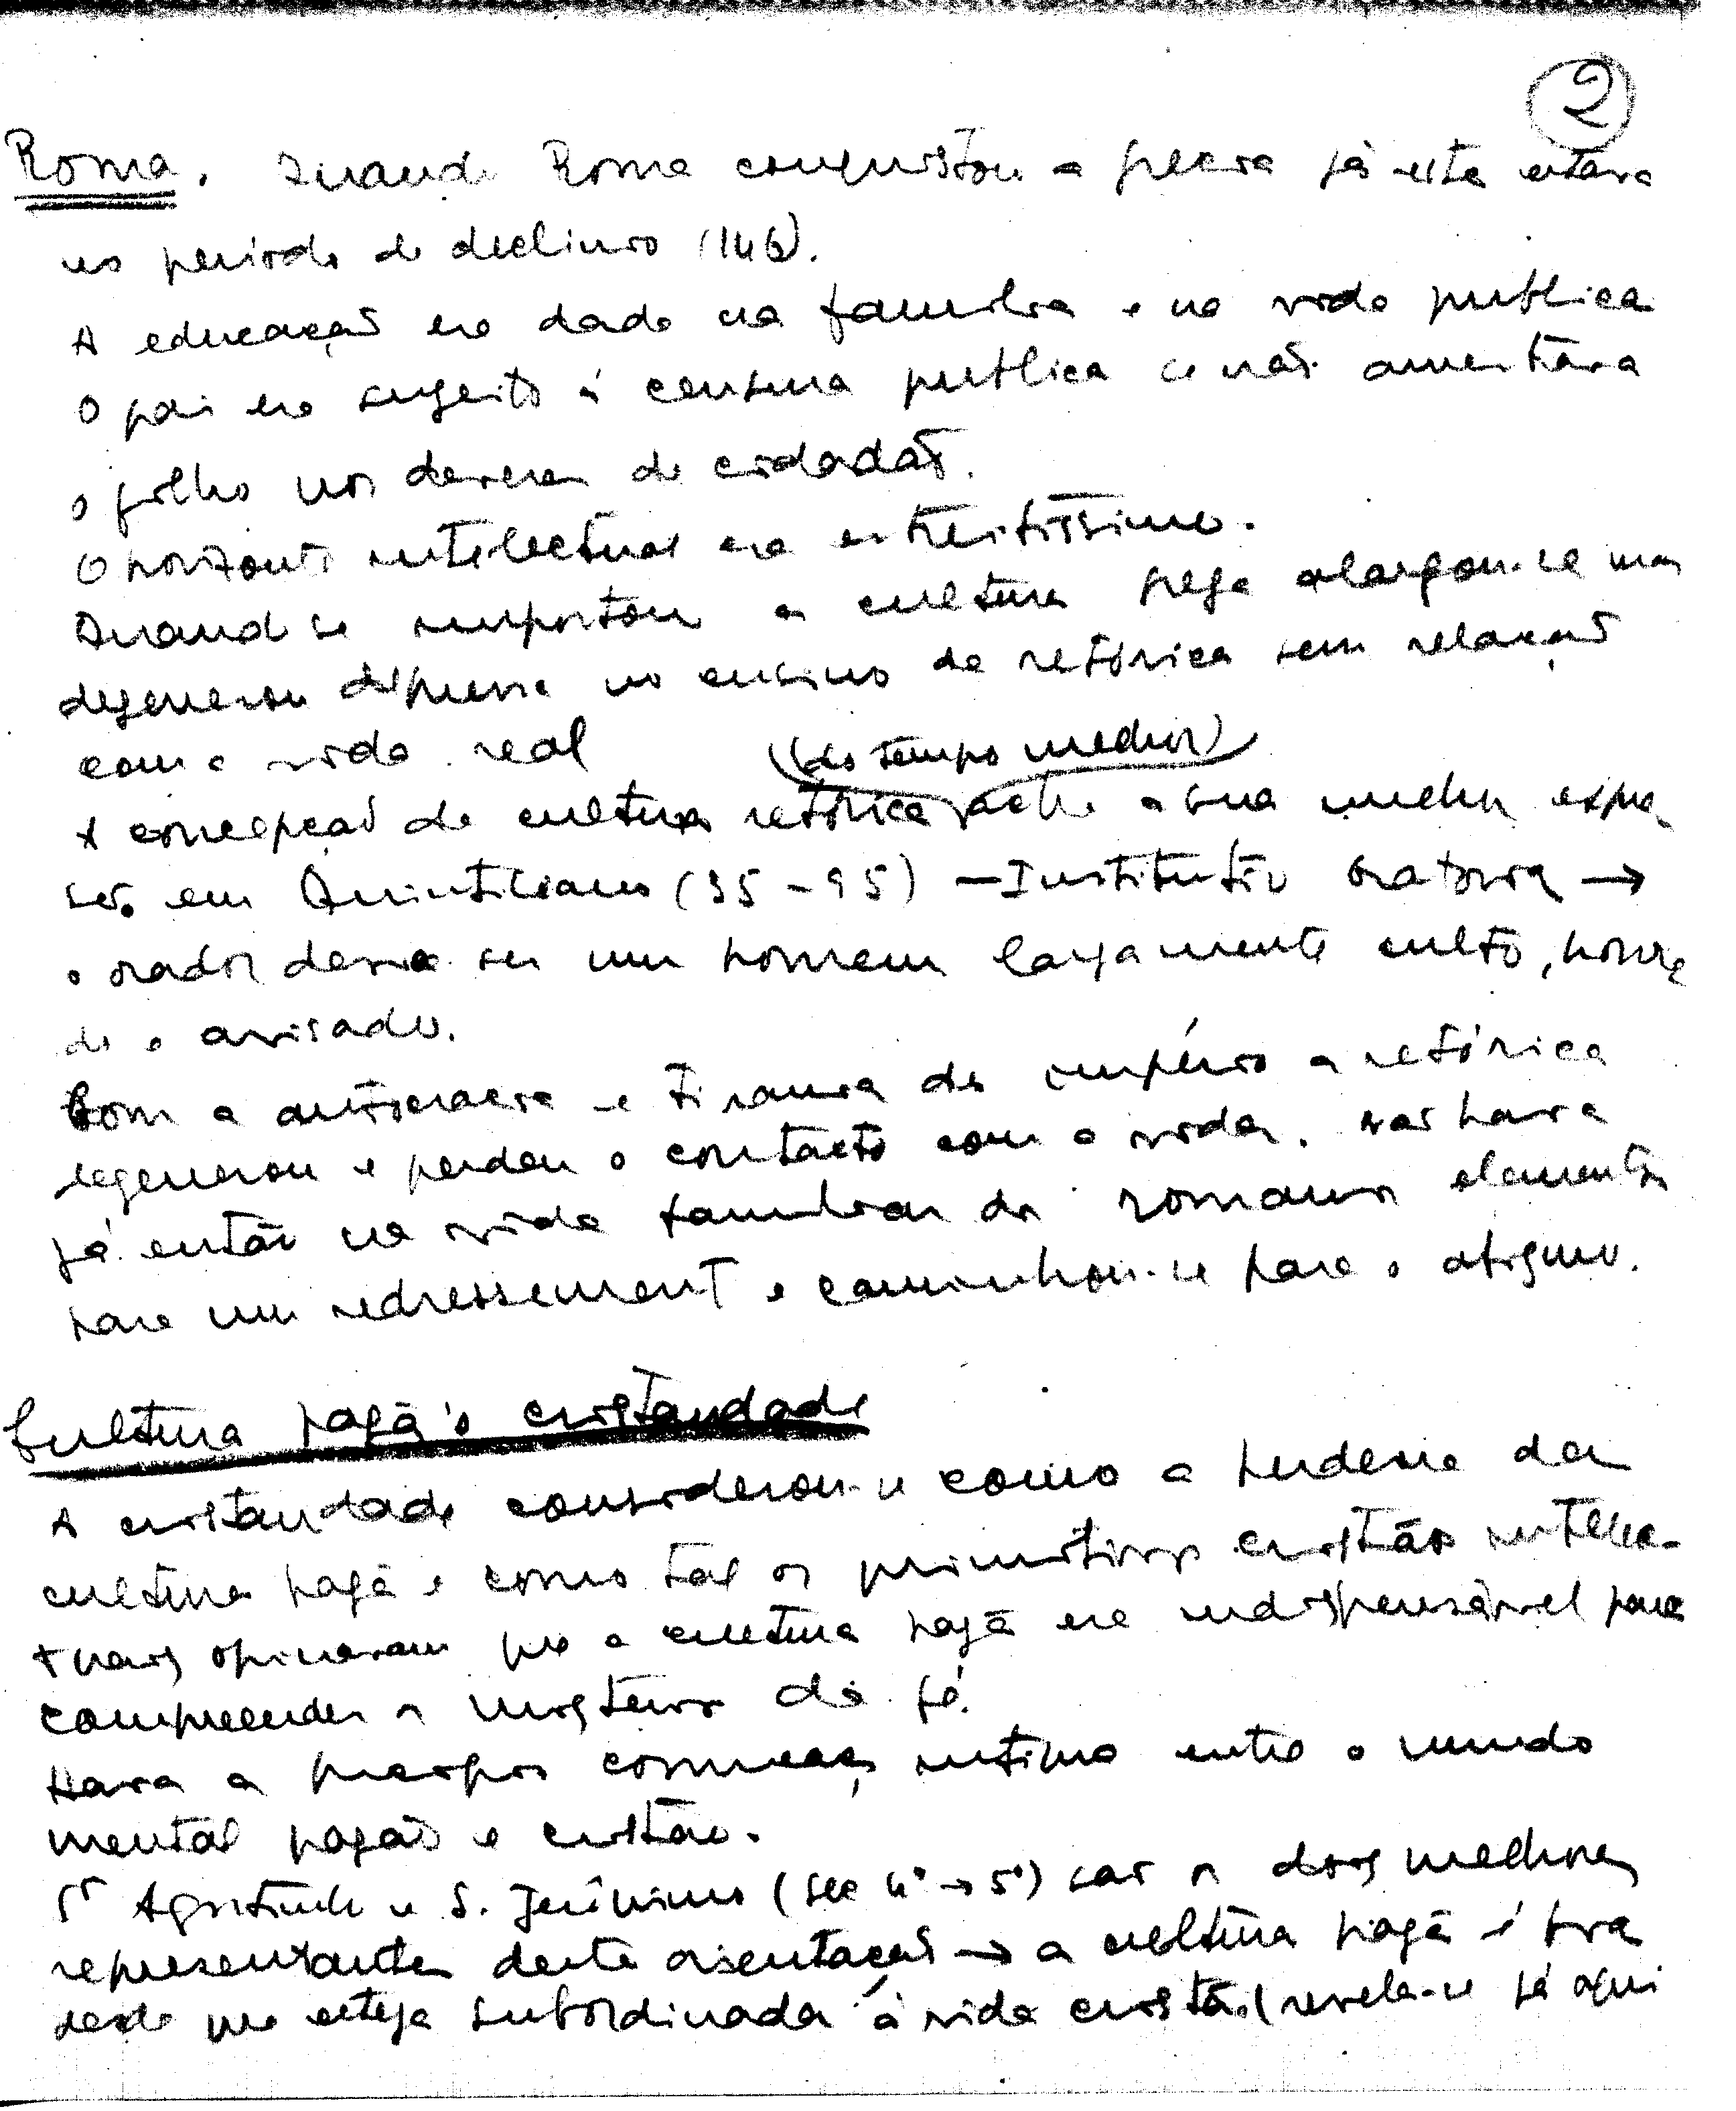 2
Roma. Quando Roma conquistou a Grecia já esta estava
no periodo de declinio (146).
A educação era dada na familia e na vida publica
O pai era sugeito á censura publica se não amestrára
o filho nos deveres de cidadão.
O horizonte intelectual era estreitissimo.
Quando se importou a cultura grega alargou-se mas
degenerou depressa no ensino da retórica sem relação
com a vida real
(do tempo medio)
A concepção de cultura retórica acha a sua melhor expres
são em Quintiliano (35-95) — Institutio oratoria →
o orador devia ser um homem largamente culto, honra
do e avisado.
Com a autocracia e tirania do império a retórica
degenerou e perdeu o contacto com a vida. Não havia
já então na vida familiar dos romanos elementos
para um redressement e caminhou-se para o abismo.
Cultura pagã e cristandade
A cristandade considerou-se como a herdeira da
cultura pagã e como tal os primitivos cristãos intelec-
tuais opinaram que a cultura pagã era indispensável para
compreender os misterios da fé.
Havia a conneção intima entre o mundo
mental pagão e cristão.
Sto Agostinho e S. Jerónimo (sec 4º → 5º) são os dois melhores
representantes desta orientação → a cultura pagã é boa
desde que esteja subordinada á vida cristã (revela-se já aqui